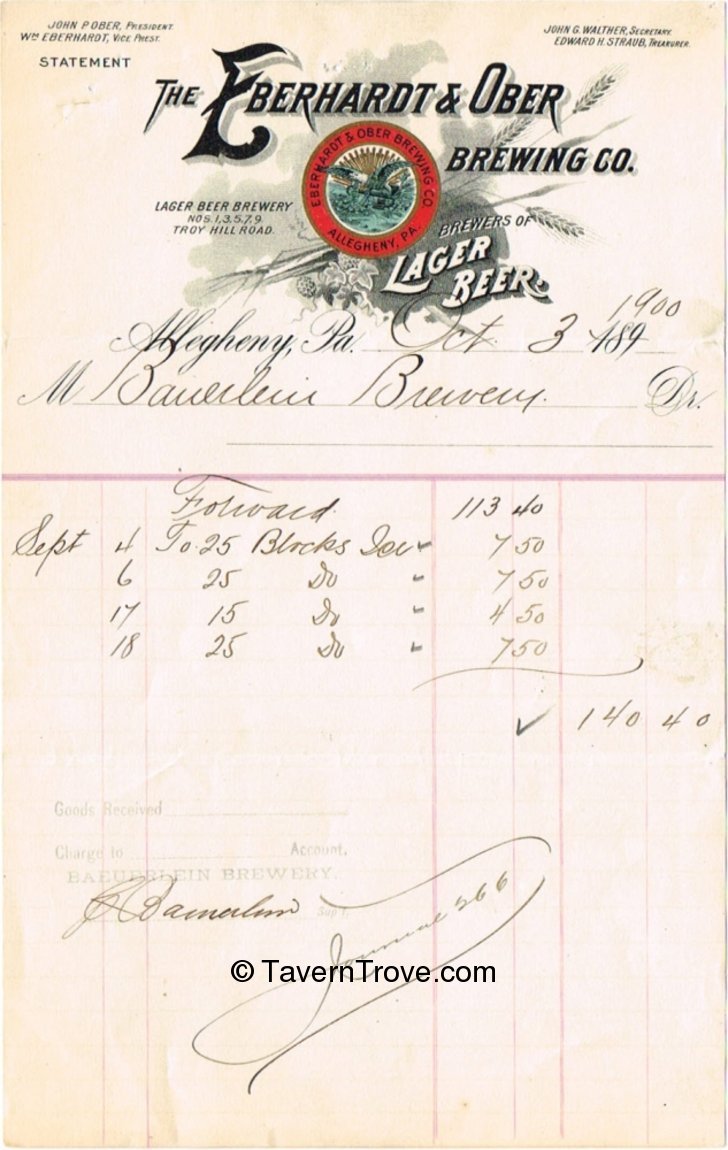 JOHN P OBER, PRESIDENT.
WM EBERHARDT, VICE PREST.
JOHN G. WALTHER, SECRETARY.
EDWARD H. STRAUB, TREASURER.
STATEMENT
THE EBERHARDT & OBER
BREWING CO.
EBERHARDT & OBER BREWING CO.
ALLEGHENY, PA.
LAGER BEER BREWERY
NOS. 1, 3, 5, 7, 9.
TROY HILL ROAD.
BREWERS OF
LAGER
BEER.
1900
Allegheny, Pa. Oct 3 189
M Bauerlein Brewery. Dr.
Forward. 113 40
Sept 4 To 25 Blocks Ice 7 50
6 25 Do 7 50
17 15 Do 4 50
18 25 Do 7 50
140 40
Goods Received
Charge to Account.
BAEUERLEIN BREWERY.
Baeuerlein Sup't.
Journal 266
© TavernTrove.com